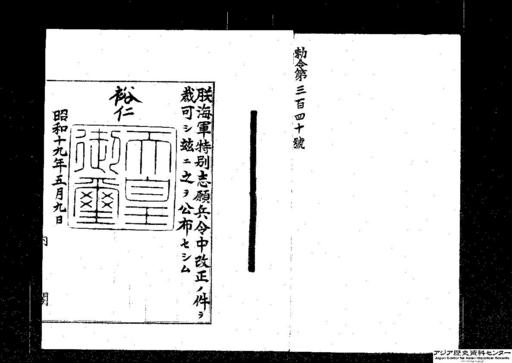 勅令第三百四十號
朕海軍特別志願兵令中改正ノ件ヲ
裁可シ玆ニ之ヲ公布セシム
裕仁
天皇
御璽
昭和十九年五月九日
内閣
アジア歴史資料センター
Japan Center for Asian Historical Records